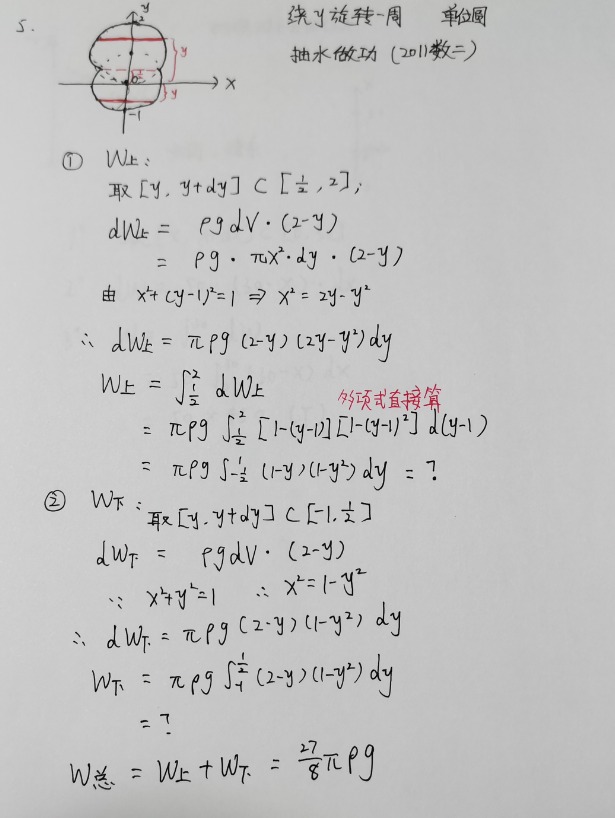 5.
绕y旋转一周 单位圆
抽水做功 (2011数二)
y
2
y
½
0
X
y
-1
① W上:
取[y, y+dy] ⊂ [½, 2];
dW上 = ρgdV·(2-y)
= ρg·πx²·dy·(2-y)
由 x²+(y-1)²=1 ⇒ x²=2y-y²
∴ dW上 = πρg(2-y)(2y-y²)dy
W上 = ∫½² dW上
多项式直接算
= πρg ∫½² [1-(y-1)][1-(y-1)²] d(y-1)
= πρg ∫-½¹ (1-y)(1-y²)dy = ?
② W下:
取[y, y+dy] ⊂ [-1, ½]
dW下 = ρgdV·(2-y)
∵ x²+y²=1 ∴ x²=1-y²
∴ dW下 = πρg(2-y)(1-y²)dy
W下 = πρg ∫-1½ (2-y)(1-y²)dy
= ?
W总 = W上+W下 = 27/8 πρg